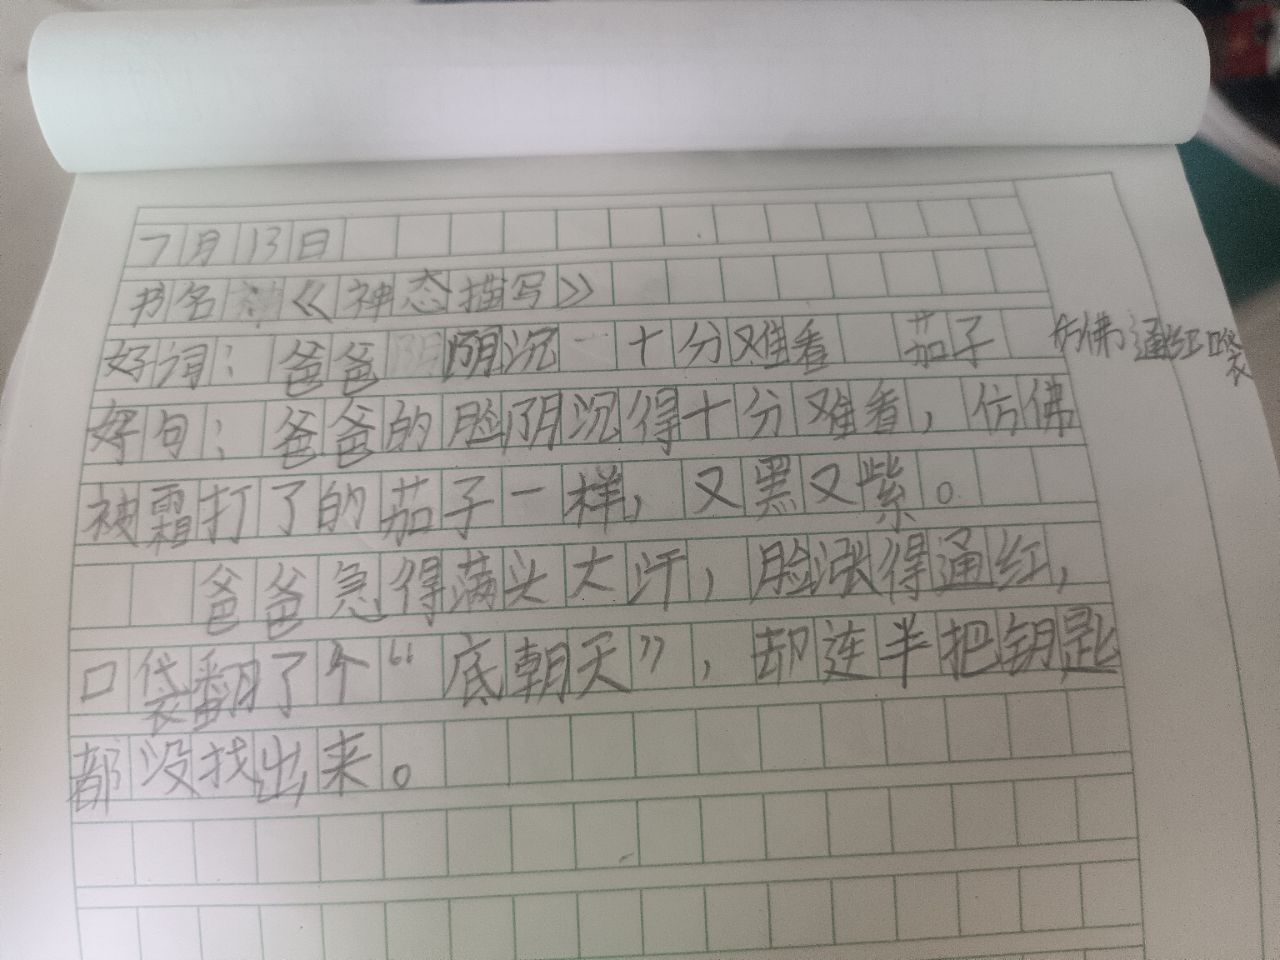 7月13日
书名：《神态描写》
好词：爸爸 阴沉 十分难看 茄子 仿佛 通红 口袋
好句：爸爸的脸阴沉得十分难看，仿佛
被霜打了的茄子一样，又黑又紫。
爸爸急得满头大汗，脸涨得通红，
口袋翻了个“底朝天”，却连半把钥匙
都没找出来。